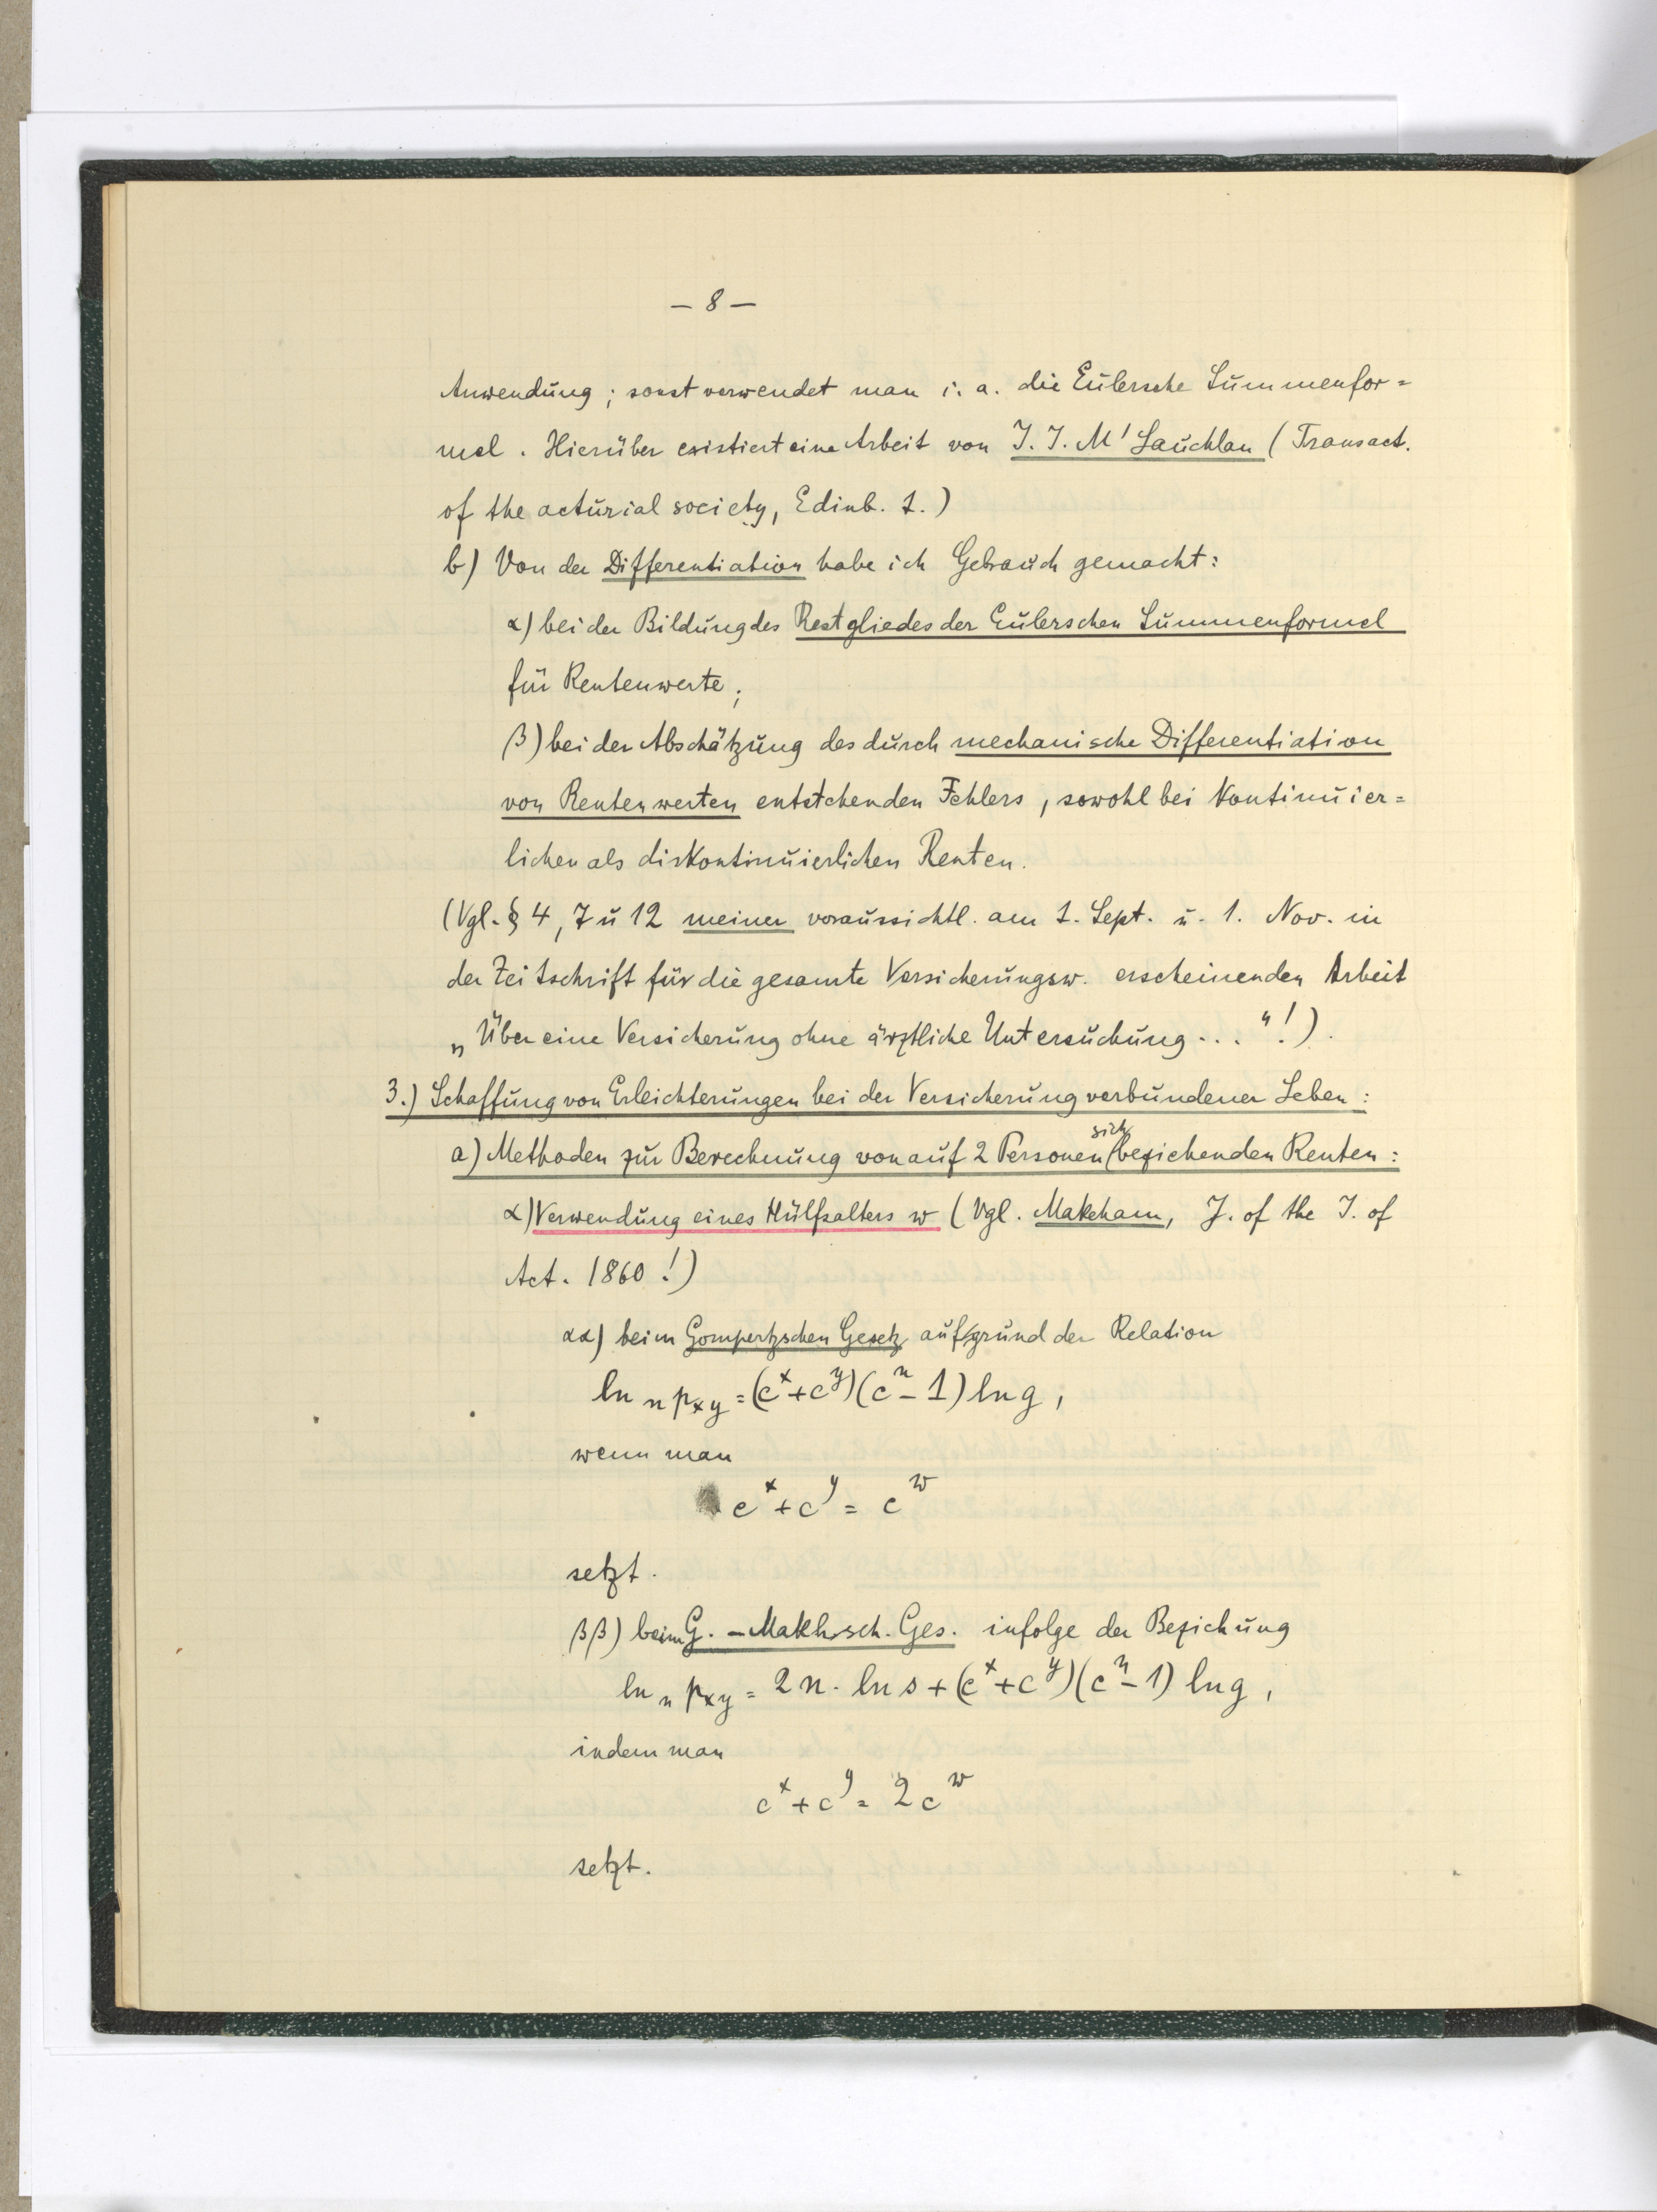 — 8 —
Anwendung; sonst verwendet man i. a. die Eulersche Summenfor=
mel. Hierüber existiert eine Arbeit von J. J. M'Lauchlan (Transact.
of the acturial society, Edinb. 1.)
b) Von der Differentiation habe ich Gebrauch gemacht:
α) bei der Bildung des Restgliedes der Eulerschen Summenformel
für Rentenwerte;
β) bei der Abschätzung des durch mechanische Differentiation
von Rentenwerten entstehenden Fehlers, sowohl bei kontinuier=
lichen als diskontinuierlichen Renten.
(Vgl. § 4, 7 u 12 meiner voraussichtl. am 1. Sept. u. 1. Nov. in
der Zeitschrift für die gesamte Versicherungsw. erscheinenden Arbeit
„Über eine Versicherung ohne ärztliche Untersuchung..."!).
3.) Schaffung von Erleichterungen bei der Versicherung verbundener Leben:
a) Methoden zur Berechnung von auf 2 Personen sich beziehenden Renten:
α) Verwendung eines Hülfsalters w (Vgl. Makeham, J. of the I. of
Act. 1860!)
αα) beim Gompertzschen Gesetz auf grund der Relation
ln ₙp_xy = (c^x + c^y)(c^n − 1) ln g,
wenn man
c^x + c^y = c^w
setzt.
ββ) beim G.-Makh.sch. Ges. infolge der Beziehung
ln ₙp_xy = 2n · ln s + (c^x + c^y)(c^n − 1) ln g,
indem man
c^x + c^y = 2c^w
setzt.